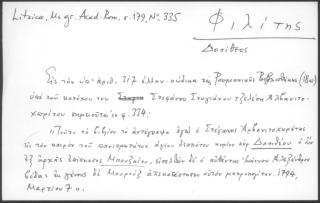 Litzica, Ms gr. Acad. Rom. σ. 179, Nº. 335
Φιλίτης
Δοσίθεος
Εἰς τὸν ὑπ' ἀριθ. 317 ἑλλην. κώδικα τῆς Ρουμανικῆς Βιβλιοθήκης (18ου)
ὑπὸ τοῦ κατόχου του Στεφάνου Στυγιάνου Τζελέπη Ἀλβανιτο-
χωρίτου σημειοῦται ἐν φ. 334:
"Τοῦτο τὸ βιβλίον τὸ ἀντέγραψα ἐγὼ ὁ Στέφανος Ἀρβανιτοχωρίτης
εἰς τὸν καιρὸν τοῦ πανιερωτάτου ἁγίου δεσπότου κυρίου κὺρ Δοσιθέου ὁ ὢν
ἐξ ἀρχῆς ἐπίσκοπος Μπουζαίου, εἰσελθὼν δὲ ὁ αὐθέντης Ἰωάννου Ἀλέξανδρος
βόδας ἐκ γένους δὲ Μουρούζ ἀποκατέστησεν αὐτὸν μητροπολίτην. 1794,
Μαρτίου 7 η.